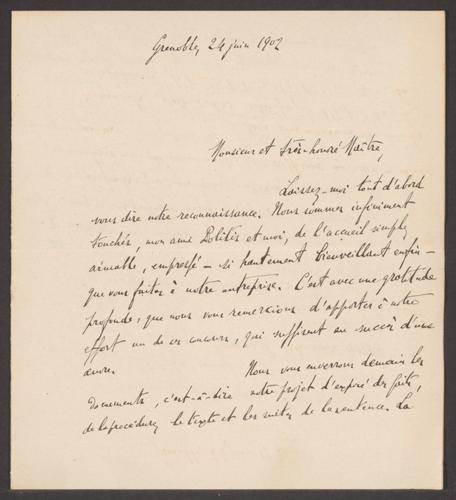 Grenoble, 24 juin 1902
Monsieur et très-honoré Maître,
Laissez-moi tout d'abord
vous dire notre reconnaissance. Nous sommes infiniment
touchés, mon ami Politis et moi, de l'accueil simple,
aimable, empressé – si hautement bienveillant enfin –
que vous faites à notre entreprise. C'est avec une gratitude
profonde, que nous vous remercions d'apporter à notre
effort un de ces concours, qui suffisent au succès d'une
œuvre.
Nous vous enverrons demain les
documents, c'est-à-dire notre projet d'exposé des faits,
de la procédure, le texte et les notes de la sentence. La